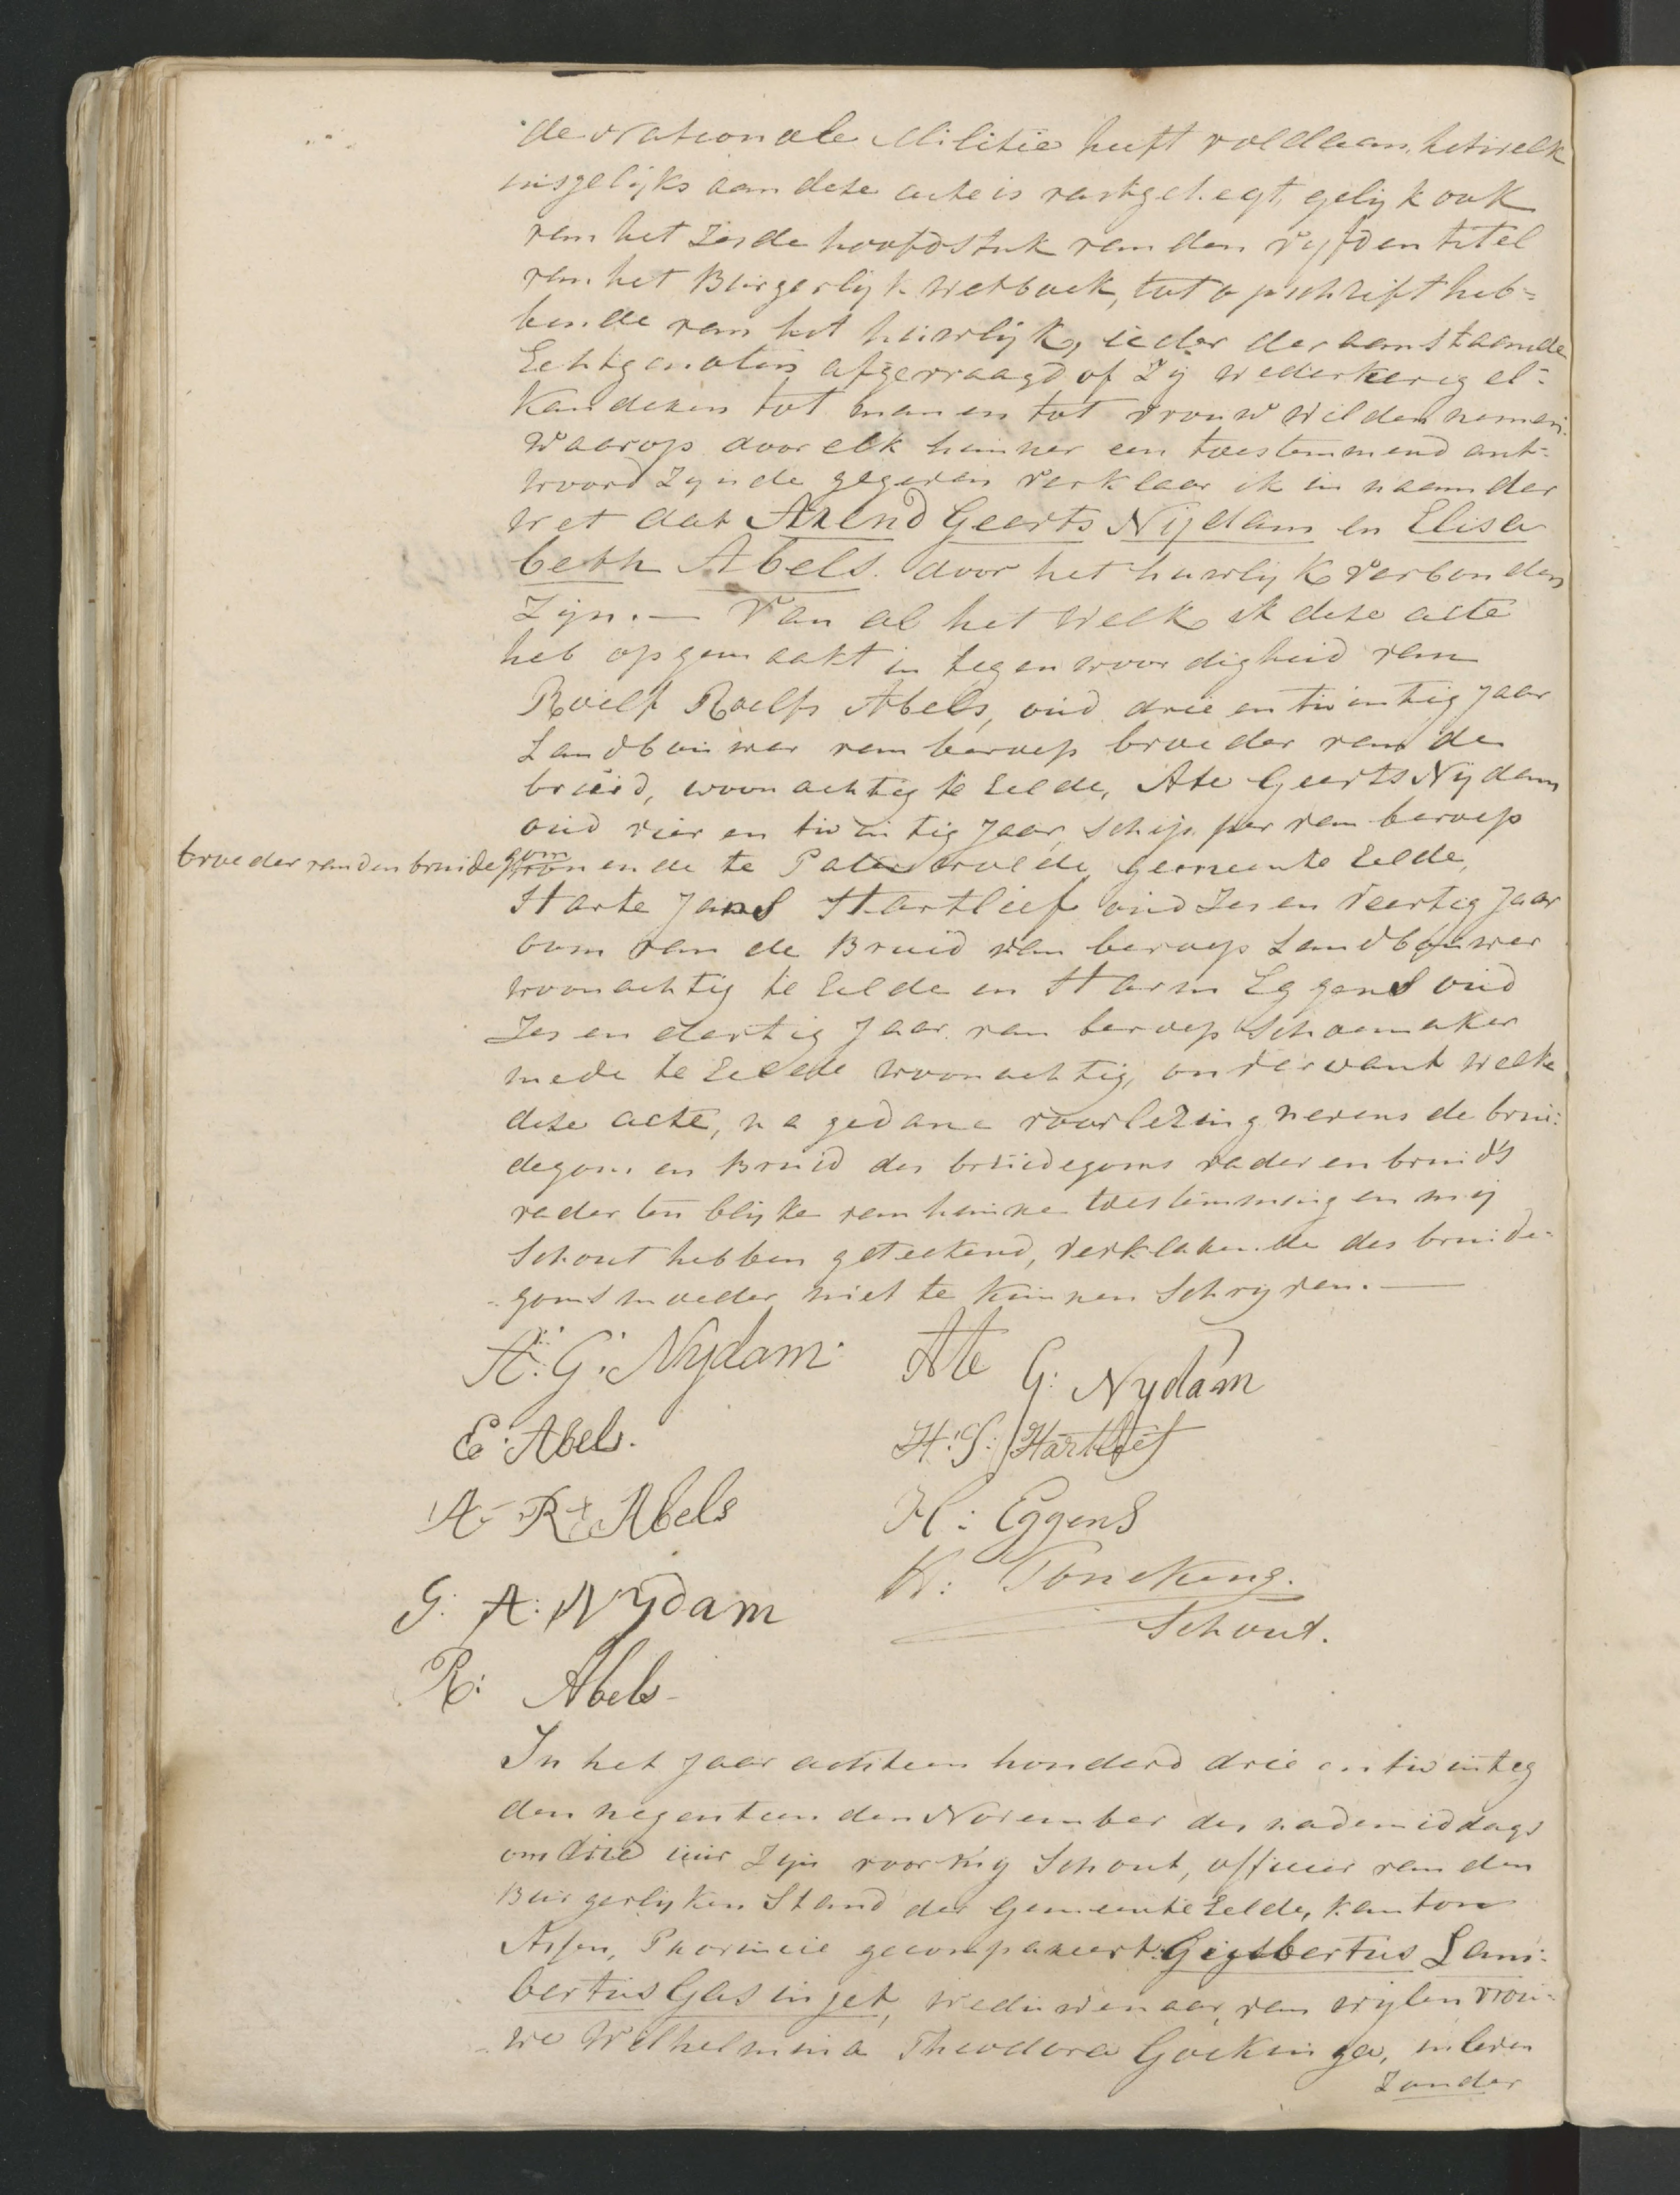 de Nationale Militie heeft voldaan, hetwelk
insgelijks aan deze acte is vastgehegt, gelijk ook
van het Zesde hoofdstuk van den vyfden titel
van het Burgerlyk Wetboek, tot opschrift heb=
bende van het huwlyk, ieder der aanstaande
Echtgenoten afgevraagd of Zy wederkerig el=
kanderen tot man en tot vrouw wilden nemen.
Waarop door elk hunner een toestemmend ant=
woord Zynde gegeven verklaar ik in naam der
wet dat Arend Geerts Nijdam en Elisa
beth Abels door het huwlyk verbonden
Zyn. — Van al het welk ik deze acte
heb opgemaakt in tegenwoordigheid van
Roelf Roelfs Abels, oud drie en twintig Jaar
Landbouwer van beroep broeder van de
bruid, woonachtig te Eelde, Ate Geerts Nijdam
oud vier en twintig Jaar, Schipper van beroep
broeder van den bruidegom wonende te Paterswolde, gemeente Eelde,
Harke Jans Hartlief oud Zes en Veertig Jaar
oom van de Bruid van beroep Landbouwer
woonachtig te Eelde en Harm Eggens oud
Zes en dertig Jaar van beroep Schoemaker
mede te Eelde woonachtig, onverwant welke
deze acte, na gedane voorlezing nevens de brui=
degom en Bruid des bruidegoms vader en bruid's
vader ten blyke van hunne toestemming en my
Schout hebben geteekend, verklarende des bruide=
goms moeder niet te kunnen Schryven. —
A: G: Nydam Ate G: Nydam
E: Abels. H: J: Hartlief
A- R: Abels H: Eggens
G: A: Nydam K: Tonckens.
Schout.
R: Abels
In het Jaar achtien honderd drie en twintig
den negentienden November des nademiddags
om drie uur Zyn voor my Schout, officier van den
Burgerlyken Stand der Gemeente Eelde, Kanton
Assen, Provincie gecompareert Gysbertus Lam=
bertus Gesinjet, weduwenaar van wylen vrou=
we Wilhelmina Theodora Gockinga, in leven
Zonder